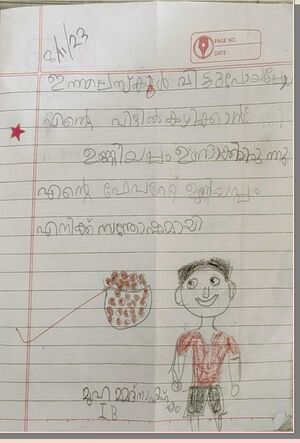 8/11/23
PAGE NO.
DATE:
ഇന്നലെ സ്കൂൾ വിട്ടുപോയപ്പോ
എന്റെ വീട്ടിൽ കഴിക്കാൻ
ഉണ്ണിയപ്പം ഉണ്ടാക്കിയിരുന്നു
എന്റെ ഫേവറേറ്റ് ഉണ്ണിയപ്പം
എനിക്ക് സന്തോഷമായി
മുഹമ്മദ്
I B